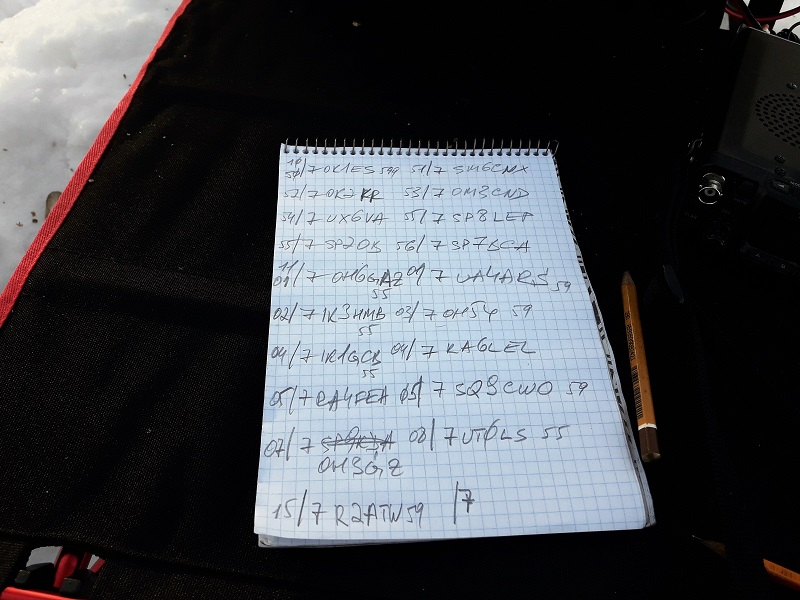 10
50/7 OK1ES 599 51/7 SM6CNX
52/7 OK2KR 53/7 OM3CND
54/7 UX6VA 55/7 SP8LEP
55/7 SP2OB 56/7 SP7BCA
11
01/7 OH6GAZ 01/7 UA4ARS 59
55
02/7 IK3HMB 03/7 OH5Y 59
55
04/7 IK1GCB 04/7 RA6LEL
55
05/7 RA4FEA 05/7 SQ9CWO 59
07/7 08/7 UT0LS 55
OH3GZ
15/7 R2ATW 59 /7